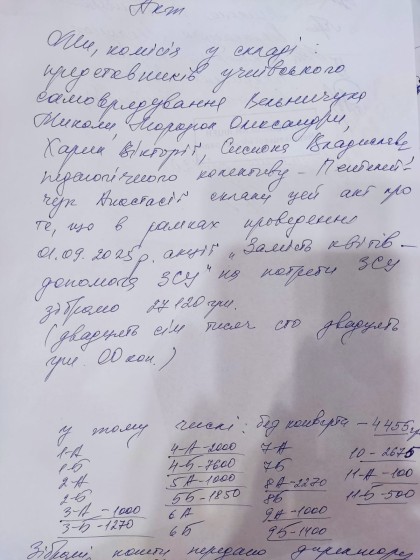 Акт
Ми, комісія у складі:
представників учнівського
самоврядування Вельничука
Миколи, Олександри,
Харик Вікторії, Владислава
педагогічного колективу –
Анастасії склали цей акт про
те, що в рамках проведення
01.09.2025р. акції „Замість квітів –
допомога ЗСУ" на потреби ЗСУ
зібрано 27120 грн.
(двадцять сім тисяч сто двадцять
грн. 00 коп.)
у тому числі: без конверта – 4455
1-А 4-А-2000 7-А 10-2675
1-Б 4-Б-7600 7Б 11-А-100
2-А 5А-1000 8А-2270 11-Б-500
2-Б 5Б-1850 8Б
3-А-1000 6А 9А-1000
3-Б-1270 6Б 9Б-1400
Зібрані кошти передано директору